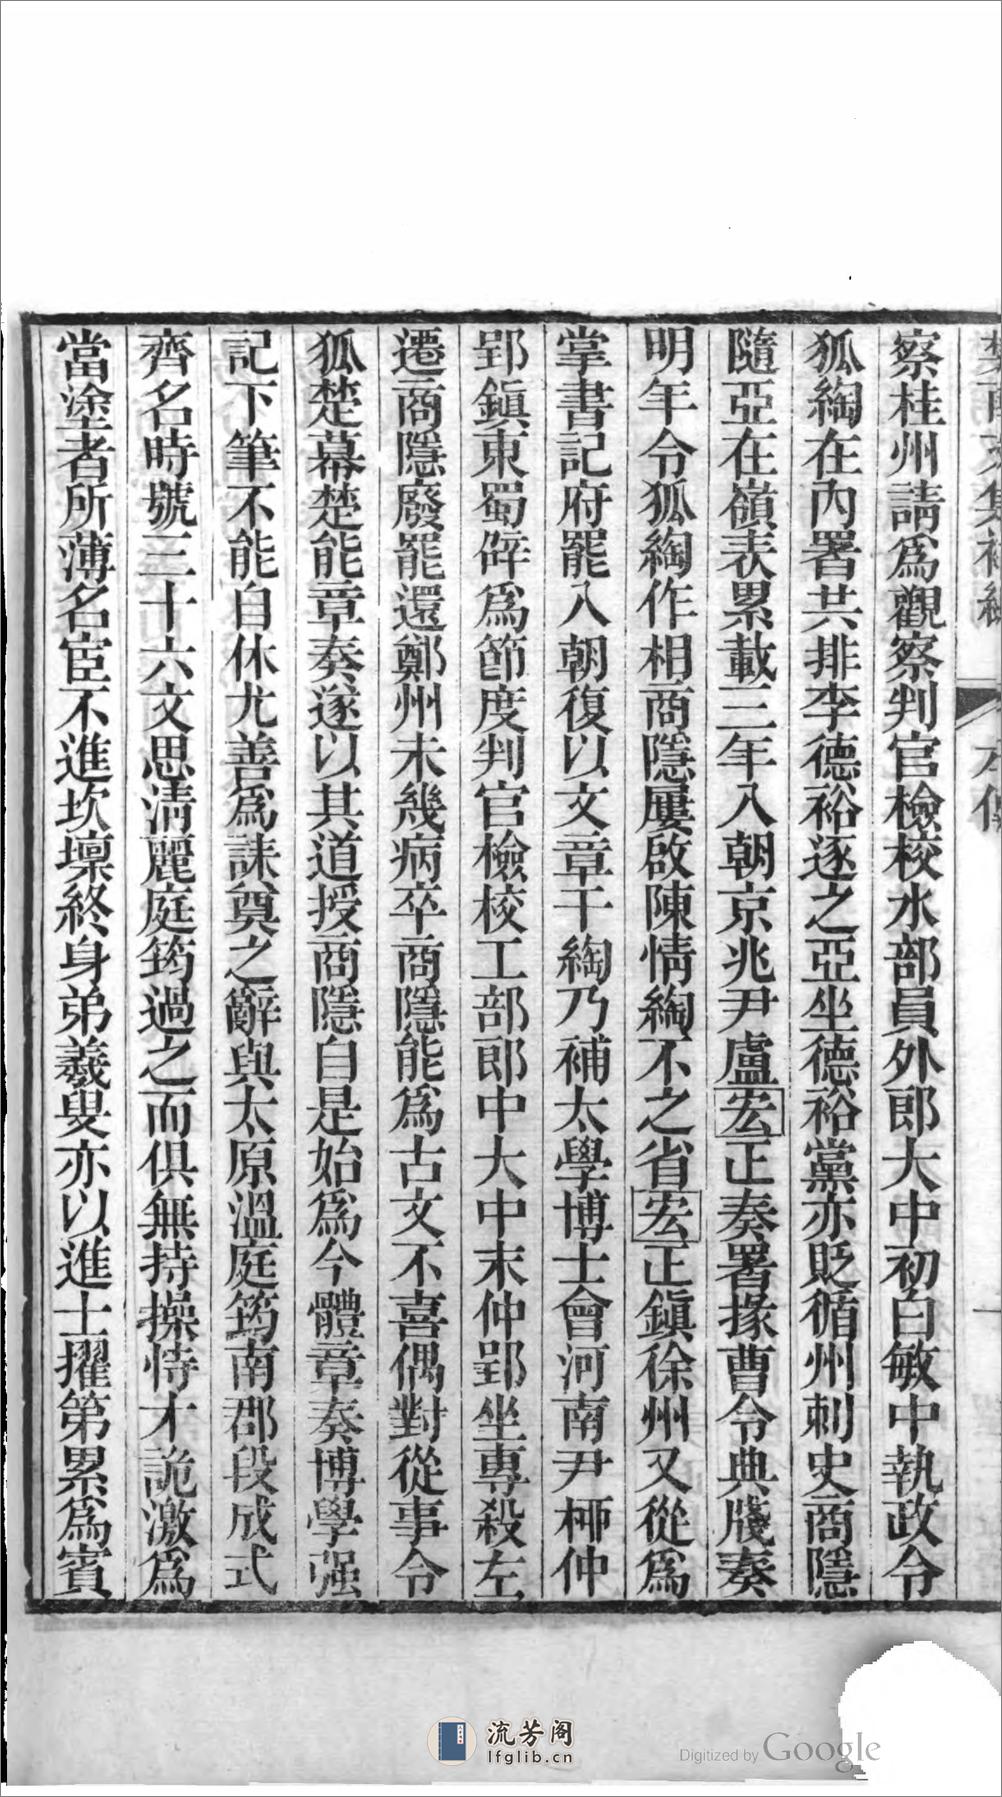 察桂州請爲觀察判官檢校水部員外郎大中初白敏中執政令
狐綯在內署共排李德裕逐之亞坐德裕黨亦貶循州刺史商隱
隨亞在嶺表累載三年入朝京兆尹盧宏正奏署掾曹令典牋奏
明年令狐綯作相商隱屢啟陳情綯不之省宏正鎮徐州又從爲
掌書記府罷入朝復以文章干綯乃補太學博士會河南尹柳仲
郢鎮東蜀辟爲節度判官檢校工部郎中大中末仲郢坐專殺左
遷商隱廢罷還鄭州未幾病卒商隱能爲古文不喜偶對從事令
狐楚幕楚能章奏遂以其道授商隱自是始爲今體章奏博學强
記下筆不能自休尤善爲誄奠之辭與太原溫庭筠南郡段成式
齊名時號三十六文思清麗庭筠過之而俱無持操恃才詭激爲
當塗者所薄名宦不進坎壈終身弟羲叟亦以進士擢第累爲賓
流芳阁
lfglib.cn
Digitized by Google